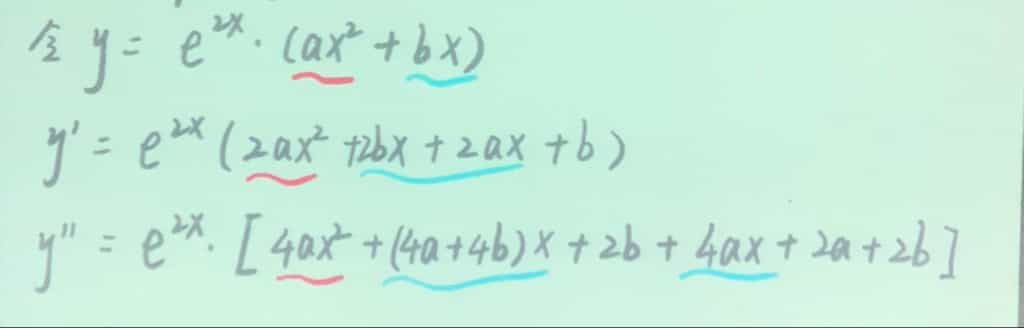 令 y = e^{2x} · (ax² + bx)
y' = e^{2x} (2ax² + 2bx + 2ax + b)
y'' = e^{2x} · [4ax² + (4a+4b)x + 2b + 4ax + 2a + 2b]